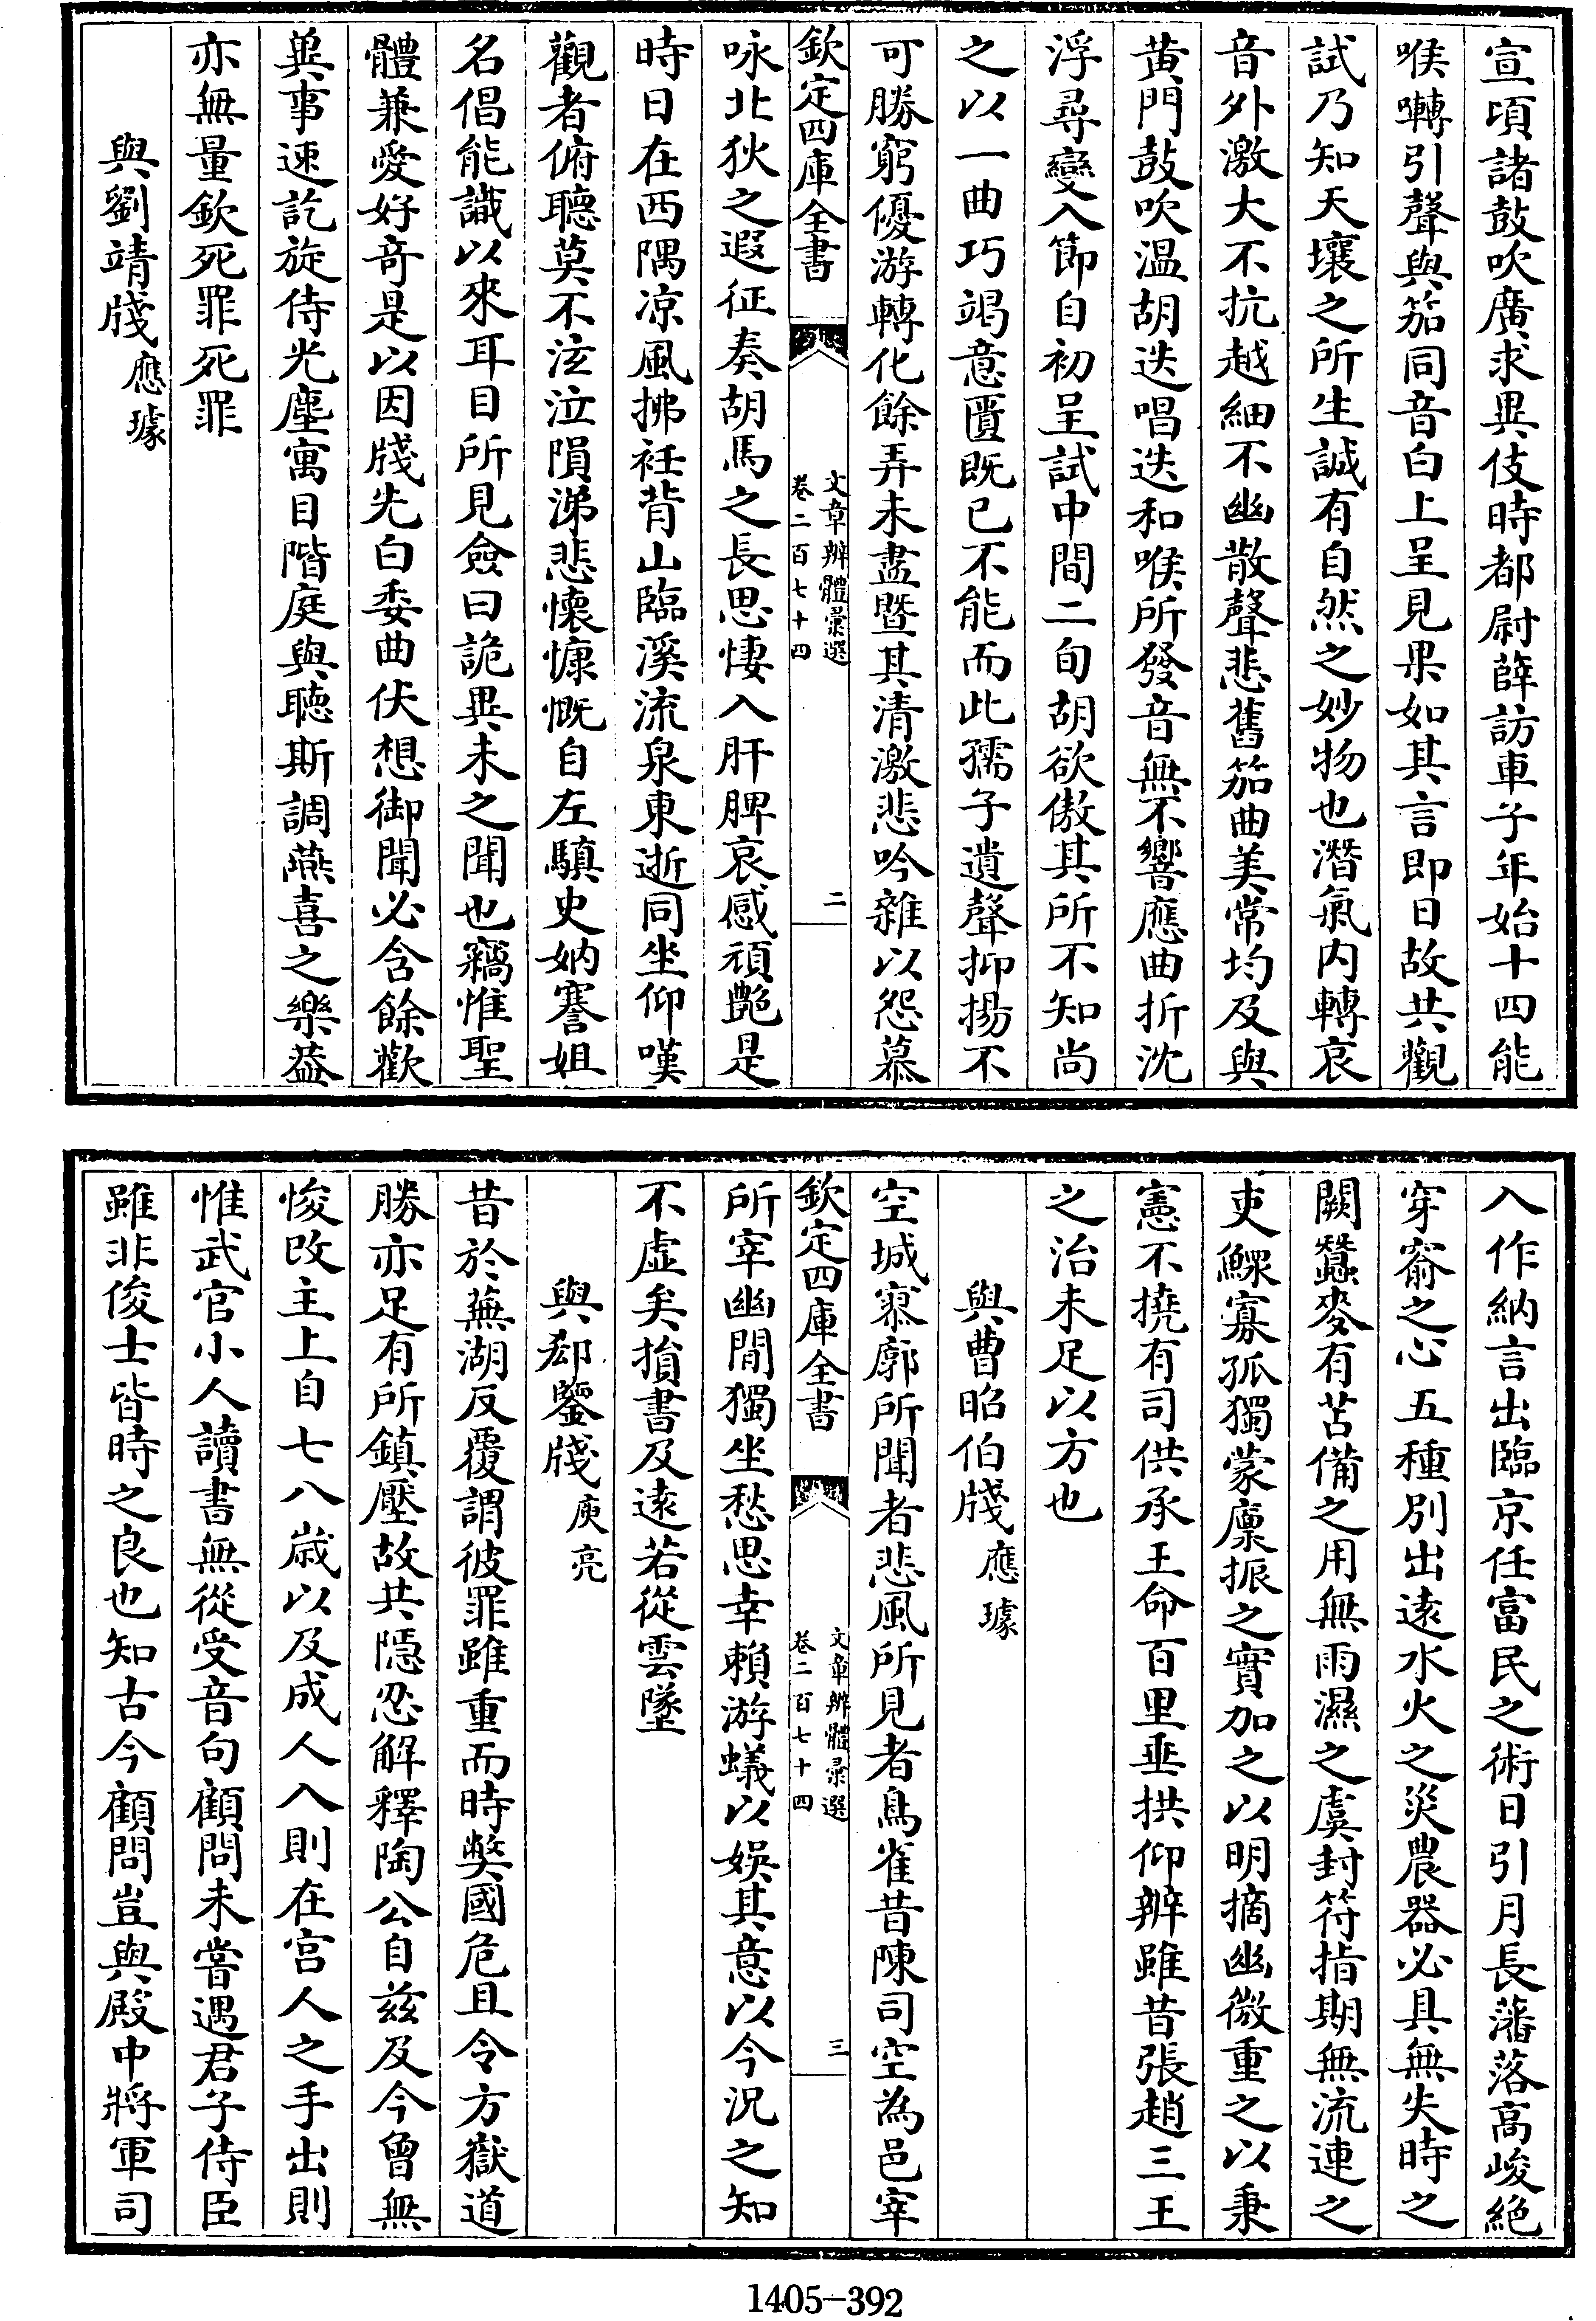 宣頃諸鼓吹廣求異伎時都尉薛訪車子年始十四能
喉囀引聲與笳同音白上呈見果如其言即日故共觀
試乃知天壤之所生誠有自然之妙物也潛氣内轉哀
音外激大不抗越細不幽散聲悲舊笳曲美常均及與
黄門鼓吹温胡迭唱迭和喉所發音無不響應曲折沈
浮尋變入節自初呈試中間二旬胡欲傲其所不知尚
之以一曲巧竭意匱既已不能而此孺子遺聲抑揚不
可勝窮優游轉化餘弄未盡暨其清激悲吟雜以怨慕
欽定四庫全書
文章辨體彚選
卷二百七十四
二
咏北狄之遐征奏胡馬之長思悽入肝脾哀感頑艶是
時日在西隅凉風拂衽背山臨溪流泉東逝同坐仰嘆
觀者俯聽莫不泫泣隕涕悲懷慷慨自左驥史妠謇姐
名倡能識以來耳目所見僉曰詭異未之聞也竊惟聖
體兼愛好奇是以因牋先白委曲伏想御聞必含餘歡
兾事速訖旋侍光塵寓目階庭與聽斯調燕喜之樂葢
亦無量欽死罪死罪
與劉靖牋應璩
入作納言出臨京任富民之術日引月長藩落高峻絶
穿窬之心五種别出遠水火之災農器必具無失時之
闕蠶麥有苫備之用無雨濕之虞封符指期無流連之
吏鰥寡孤獨蒙廪振之實加之以明摘幽微重之以秉
憲不撓有司供承王命百里垂拱仰辨雖昔張趙三王
之治未足以方也
與曹昭伯牋應璩
空城寥廓所聞者悲風所見者鳥雀昔陳司空為邑宰
欽定四庫全書
文章辨體彚選
卷二百七十四
三
所宰幽閒獨坐愁思幸賴游蟻以娱其意以今況之知
不虚矣損書及遠若從雲墜
與郄鑒牋庾亮
昔於蕪湖反覆謂彼罪雖重而時獘國危且令方嶽道
勝亦足有所鎮壓故共隠忍解釋陶公自兹及今曾無
悛改主上自七八歳以及成人入則在宫人之手出則
惟武官小人讀書無從受音句顧問未嘗遇君子侍臣
雖非俊士皆時之良也知古今顧問豈與殿中將軍司
1405-392